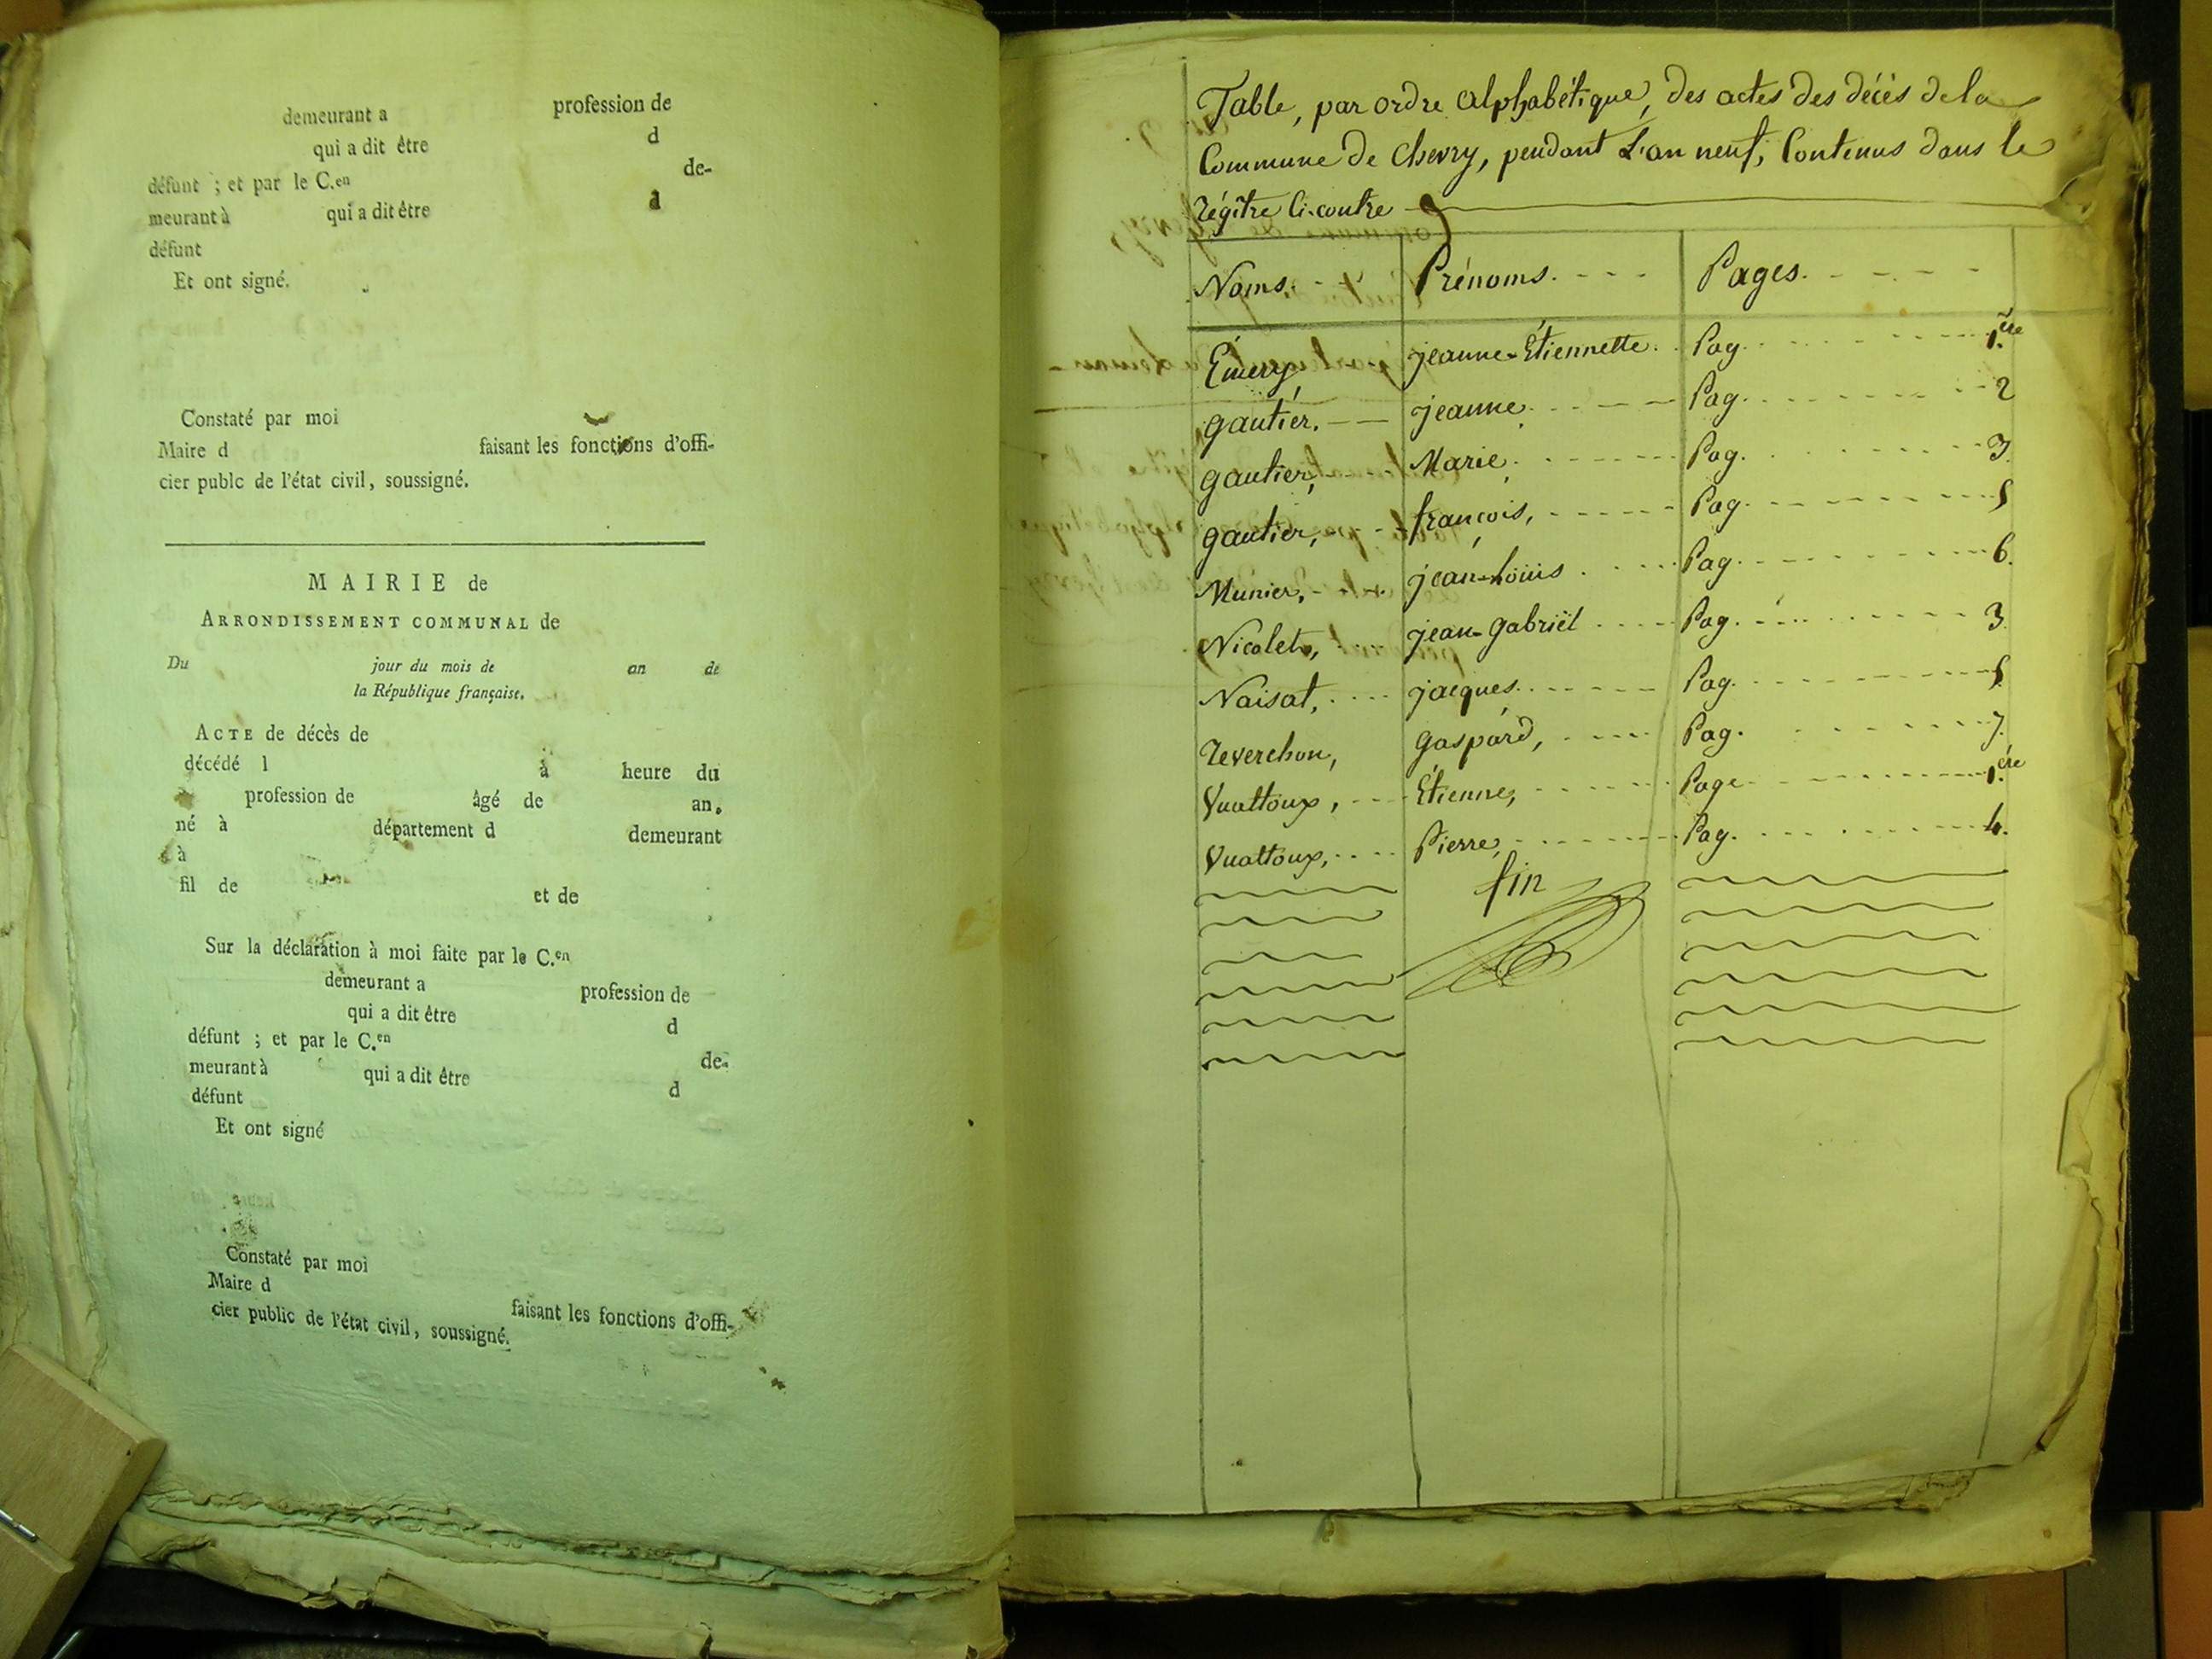 demeurant a profession de
qui a dit être d
défunt ; et par le C.en de-
meurant à qui a dit être d
défunt
Et ont signé.
Constaté par moi
Maire d faisant les fonctions d'offi-
cier publc de l'état civil, soussigné.
MAIRIE de
ARRONDISSEMENT COMMUNAL de
Du jour du mois de an de
la République française.
ACTE de décès de
décédé l à heure du
profession de âgé de an.
né à département d demeurant
à
fil de et de
Sur la déclaration à moi faite par le C.en
demeurant a profession de
qui a dit être d
défunt ; et par le C.en de-
meurant à qui a dit être d
défunt
Et ont signé
Constaté par moi
Maire d faisant les fonctions d'offi-
cier public de l'état civil, soussigné.
Table, par ordre alphabétique, des actes des décès de la
Commune de Chevry, pendant L'an neuf, Contenus dans le
régître Ci-contre
Noms. Prénoms. Pages.
Émery jeanne-Étiennette. Pag. 1.ère
gautier. jeanne. Pag. 2
gautier, Marie. Pag. 3.
gautier, françois, Pag. 5
Munier, jean-Loüis. Pag. 6.
Nicolet, jean-gabriël Pag. 3.
Naisat, jacques. Pag. 5.
reverchon, gaspard, Pag. 7.
Vuattoux, Étienne, Page 1.ère
Vuattoux, Pierre, Pag. 4.
fin